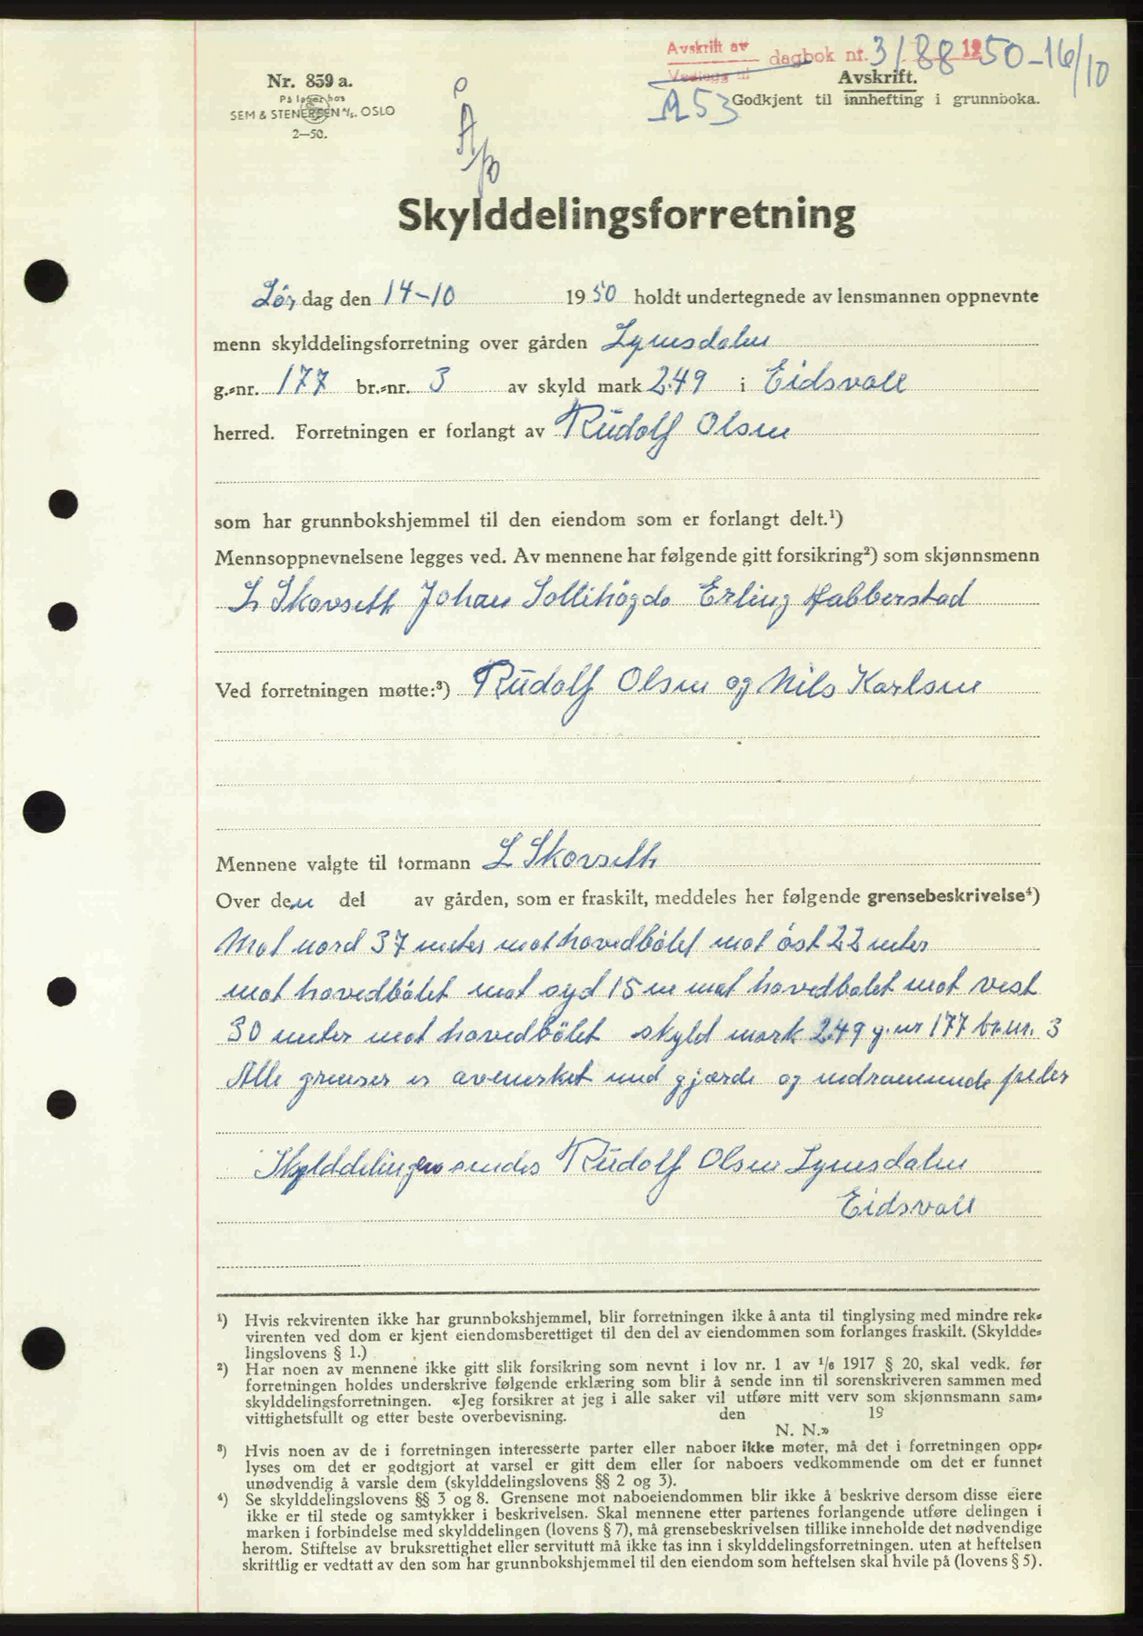 Avskrift av dagbok nr. 3188 1950-16/10
Vedlegg til
Nr. 859 a.
På lager hos
SEM & STENERSEN A/S. OSLO
2—50.
Avskrift.
A53 Godkjent til innhefting i grunnboka.
Skylddelingsforretning
Lør dag den 14-10 1950 holdt undertegnede av lensmannen oppnevnte
menn skylddelingsforretning over gården Lynesdalen
g.-nr. 177 br.-nr. 3 av skyld mark 2.49 i Eidsvall
herred. Forretningen er forlangt av Rudolf Olsen
som har grunnbokshjemmel til den eiendom som er forlangt delt.¹)
Mennsoppnevnelsene legges ved. Av mennene har følgende gitt forsikring²) som skjønnsmenn
L Skovseth Johan Sollihøgda Erling Habberstad
Ved forretningen møtte:³) Rudolf Olsen og Nils Karlsen
Mennene valgte til formann L Skovseth
Over den del av gården, som er fraskilt, meddeles her følgende grensebeskrivelse⁴)
Mot nord 37 meter mot hovedbölet mot öst 22 meter
mot hovedbölet mot syd 15 m mot hovedbolet mot vest
30 meter mot hovedbölet skyld mark 249 g.nr 177 br.nr. 3
Alle grenser er avmerket med gjærde og nedrammede peler
Skylddelingen sendes Rudolf Olsen Lynesdalen
Eidsvall
¹) Hvis rekvirenten ikke har grunnbokshjemmel, blir forretningen ikke å anta til tinglysing med mindre rek-
virenten ved dom er kjent eiendomsberettiget til den del av eiendommen som forlanges fraskilt. (Skyldde-
lingslovens § 1.)
²) Har noen av mennene ikke gitt slik forsikring som nevnt i lov nr. 1 av ¹/₆ 1917 § 20, skal vedk. før
forretningen holdes underskrive følgende erklæring som blir å sende inn til sorenskriveren sammen med
skylddelingsforretningen. «Jeg forsikrer at jeg i alle saker vil utføre mitt verv som skjønnsmann sam-
vittighetsfullt og etter beste overbevisning. den 19
N. N.»
³) Hvis noen av de i forretningen interesserte parter eller naboer ikke møter, må det i forretningen opp-
lyses om det er godtgjort at varsel er gitt dem eller for naboers vedkommende om det er funnet
unødvendig å varsle dem (skylddelingslovens §§ 2 og 3).
⁴) Se skylddelingslovens §§ 3 og 8. Grensene mot naboeiendommen blir ikke å beskrive dersom disse eiere
ikke er til stede og samtykker i beskrivelsen. Skal mennene etter partenes forlangende utføre delingen i
marken i forbindelse med skylddelingen (lovens § 7), må grensebeskrivelsen tillike inneholde det nødvendige
herom. Stiftelse av bruksrettighet eller servitutt må ikke tas inn i skylddelingsforretningen. uten at heftelsen
skriftlig er vedtatt av den som har grunnbokshjemmel til den eiendom som heftelsen skal hvile på (lovens § 5).